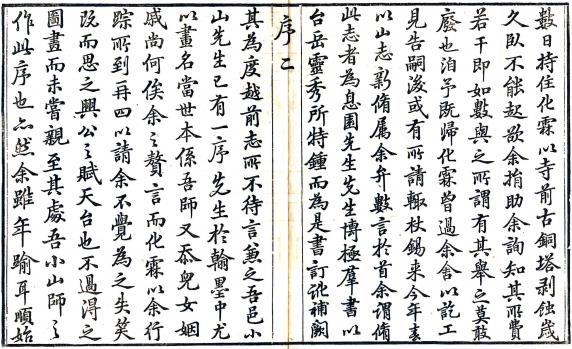 數日持住化霖以寺前古銅塔剥蝕歲
久臥不能起欲余捐助余詢知其所費
若干即如數與之所謂有其舉之莫敢
廢也洎予既歸化霖曾過余舍以訖工
見告嗣後或有所請輙杖錫來今年春
以山志新脩屬余弁數言於首余謂脩
此志者為息園先生先生博極羣書以
台岳靈秀所特鍾而為是書訂訛補闕
序二
其為度越前志所不待言兼之吾邑小
山先生已有一序先生於翰墨中尤
以畫名當世本係吾師又忝兒女姻
戚尚何俟余之贅言而化霖以余行
踪所到一再四以請余不覺為之失笑
既而思之興公之賦天台也不過得之
圖畫而未嘗親至其處吾小山師之
作此序也亦然余雖年踰耳順始